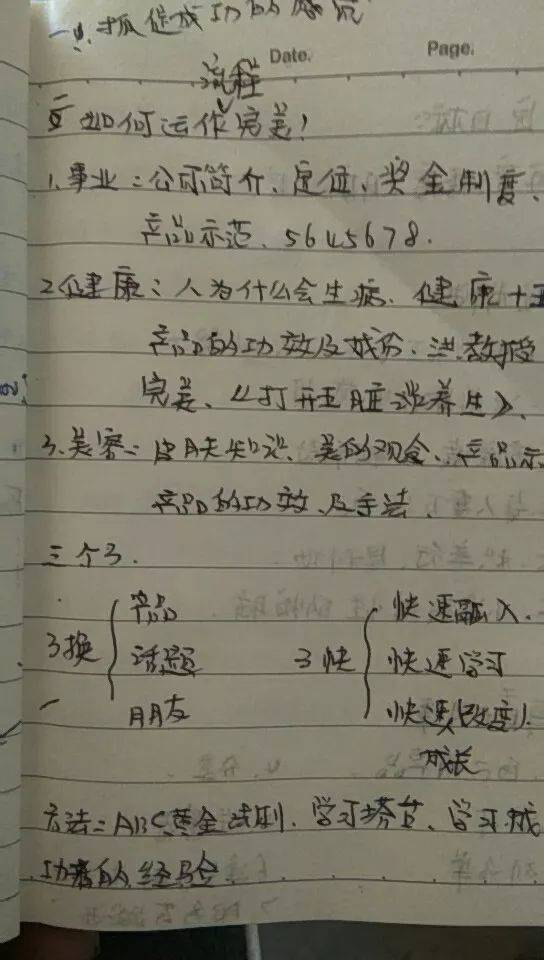 抓促成功的
Date. Page.
流程
如何运作完美!
1.事业:公司简介、定位、奖金制度、
产品示范、5645678.
2健康:人为什么会生病、健康十五
产品的功效及成份、洪教授
完美、《打开五脏谈养生》、
3.美容:皮肤知识、美的观念、产品示
产品的功效、及手法、
三个3.
3换 产品 3快 快速融入.
话题 快速学习
朋友 快速改变、
成长
方法:ABC黄金法则、学习搭台、学习成
功者的经验